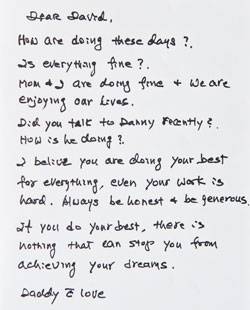 Dear David,
How are doing these days?.
Is everything fine?.
Mom & I are doing fine & we are
enjoying our lives.
Did you talk to Danny recently?.
How is he doing?.
I belive you are doing your best
for everything, even your work is
hard. Always be honest & be generous.
If you do your best, there is
nothing that can stop you from
achieving your dreams.
Daddy c̄ love